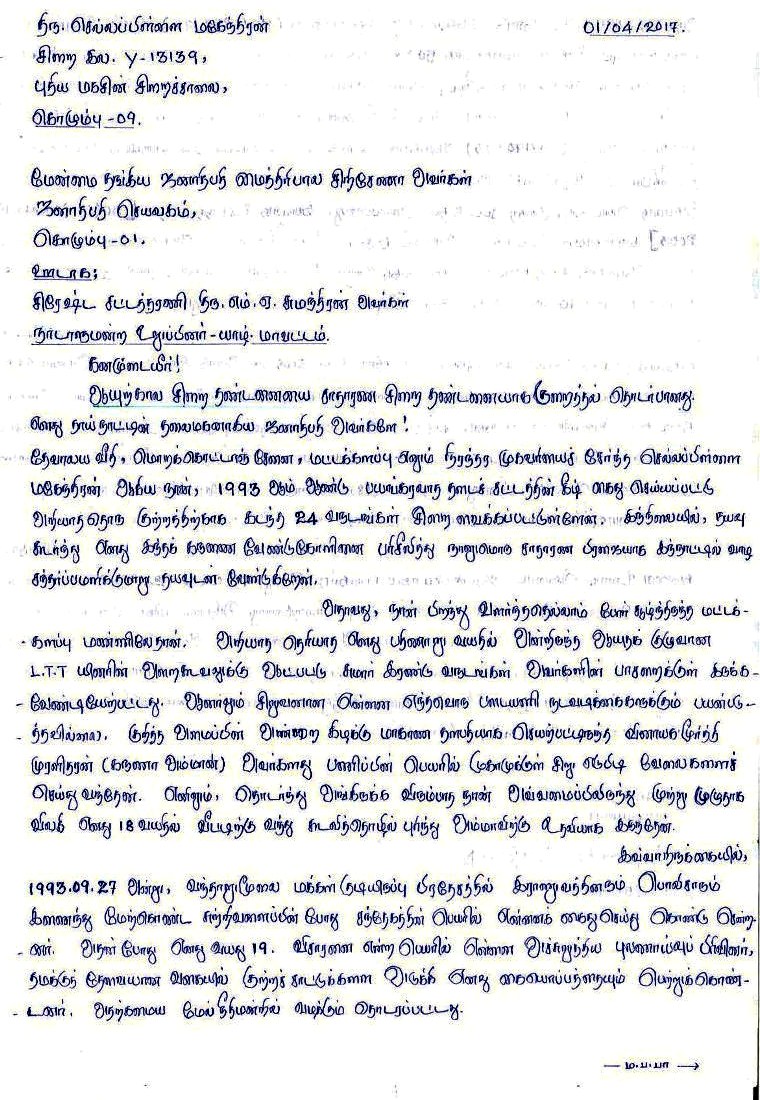 திரு. செல்லப்பிள்ளை மகேந்திரன் 01/04/2017.
சிறை இல. Y-13139,
புதிய மகசின் சிறைச்சாலை,
கொழும்பு -09.
மேன்மை தங்கிய ஜனாதிபதி மைத்திரிபால சிறிசேனா அவர்கள்
ஜனாதிபதி செயலகம்,
கொழும்பு -01.
ஊடாக;
சிரேஷ்ட சட்டத்தரணி திரு. எம். ஏ. சுமந்திரன் அவர்கள்
நாடாளுமன்ற உறுப்பினர் - யாழ். மாவட்டம்.
கனமுடையீர்!
ஆயுற்கால சிறை தண்டனையை சாதாரண சிறை தண்டனையாக குறைத்தல் தொடர்பானது.
எனது தாய்நாட்டின் தலைமகனாகிய ஜனாதிபதி அவர்களே!
தேவாலய வீதி, மொறக்கொட்டாஞ் சேனை, மட்டக்களப்பு எனும் நிரந்தர முகவரியைச் சேர்ந்த செல்லப்பிள்ளை
மகேந்திரன் ஆகிய நான், 1993 ஆம் ஆண்டு பயங்கரவாத தடைச் சட்டத்தின் கீழ் கைது செய்யப்பட்டு
அறியாததொரு குற்றத்திற்காக கடந்த 24 வருடங்கள் சிறை வைக்கப்பட்டுள்ளேன். இந்நிலையில், தயவு
கூர்ந்து எனது இந்தக் கருணை வேண்டுகோளினை பரிசீலித்து நானுமொரு சாதாரண பிரஜையாக இந்நாட்டில் வாழ
சந்தர்ப்பமளிக்குமாறு தயவுடன் வேண்டுகிறேன்.
அதாவது, நான் பிறந்து வளர்ந்ததெல்லாம் போர் சூழ்ந்திருந்த மட்டக்-
களப்பு மண்ணிலேதான். அறியாத தெரியாத எனது பதினாறு வயதில் அன்றிருந்த ஆயுதக் குழுவான
L.T.T யினரின் அறைகூவலுக்கு ஆட்பட்டு சுமார் இரண்டு வருடங்கள் அவர்களின் பாசறைக்குள் இருக்க
வேண்டியேற்பட்டது. ஆனாலும் சிறுவனான என்னை எந்தவொரு படையணி நடவடிக்கைகளுக்கும் பயன்படு-
த்தவில்லை. குறித்த அமைப்பின் அன்றைய கிழக்கு மாகாண தளபதியாக செயற்பட்டிருந்த விநாயகமூர்த்தி
முரளிதரன் (கருணா அம்மான்) அவர்களது பணிப்பின் பெயரில் முகாமுக்குள் சிறு எடுபிடி வேலைகளைச்
செய்து வந்தேன். எனினும், தொடர்ந்து அங்கிருக்க விரும்பாத நான் அவ்வமைப்பிலிருந்து முற்று முழுதாக
விலகி எனது 18 வயதில் வீட்டிற்கு வந்து கூலித்தொழில் புரிந்து அம்மாவிற்கு உதவியாக இருந்தேன்.
இவ்வாறிருக்கையில்,
1993.09.27 அன்று, வந்தாறுமூலை மக்கள் குடியிருப்பு பிரதேசத்தில் இராணுவத்தினரும் பொலிசாரும்
இணைந்து மேற்கொண்ட சுற்றிவளைப்பின் போது சந்தேகத்தின் பெயரில் என்னைக் கைது செய்து கொண்டு சென்ற-
னர். அதன் போது எனது வயது 19. விசாரணை என்ற பெயரில் என்னை அச்சுறுத்திய புலனாய்வுப் பிரிவினர்,
தமக்குத் தேவையான வகையில் குற்றச் சாட்டுக்களை அடுக்கி எனது கையொப்பத்தையும் பெற்றுக்கொண்-
டனர். அதற்கமைய மேல் நீதிமன்றில் வழக்கும் தொடரப்பட்டது.
— ம.ப.பா →